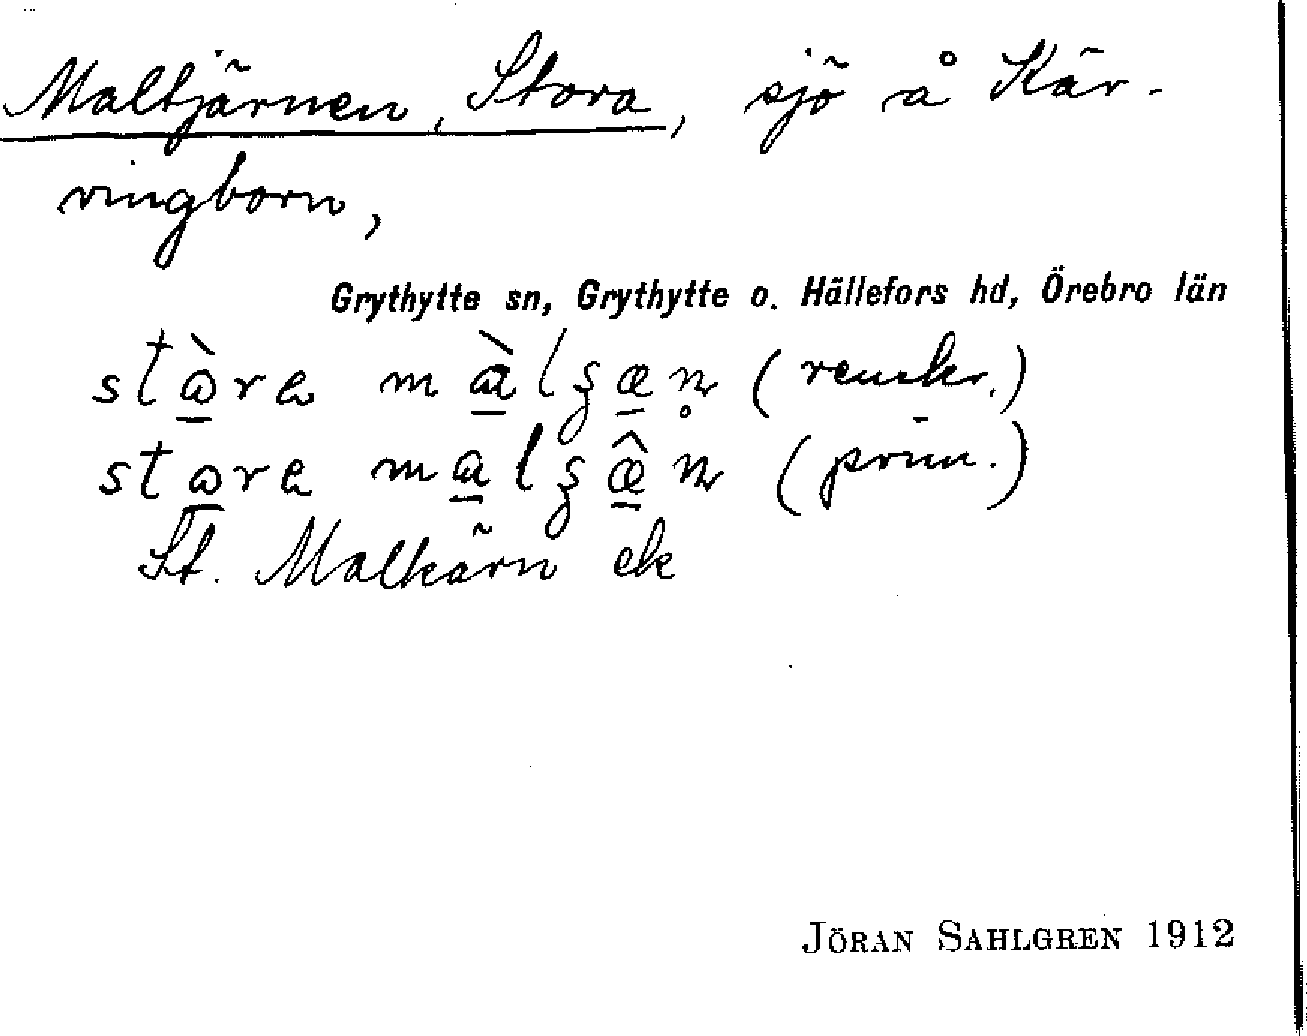 Maltjärnen, Stora, sjö å Kär-
ringborn,
Grythytte sn, Grythytte o. Hällefors hd, Örebro län
stɷ̀ra mɑ̀lʒæn̥ (renskr.)
stɷra mɑlʒæ̂n (prim.)
St. Malkärn ek
JÖRAN SAHLGREN 1912